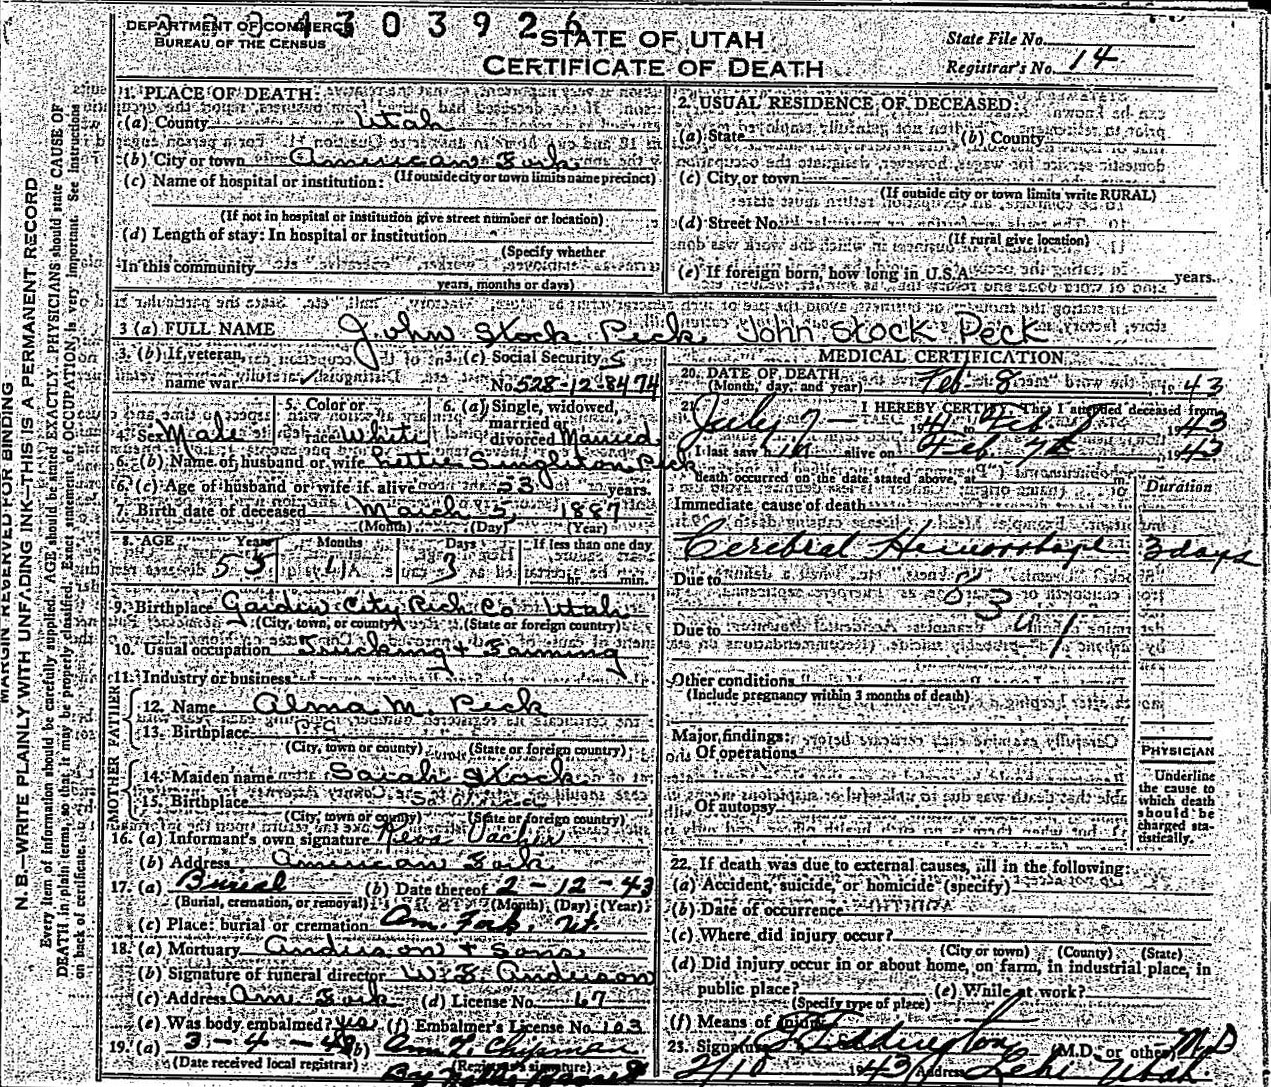 DEPARTMENT OF COMMERCE
BUREAU OF THE CENSUS
4303926
STATE OF UTAH
CERTIFICATE OF DEATH
State File No.
Registrar's No. 14
MARGIN RESERVED FOR BINDING
N. B.—WRITE PLAINLY WITH UNFADING INK—THIS IS A PERMANENT RECORD
Every item of information should be carefully supplied. AGE should be stated EXACTLY. PHYSICIANS should state CAUSE OF
DEATH in plain terms, so that it may be properly classified. Exact statement of OCCUPATION is very important. See instructions
on back of certificate.
1. PLACE OF DEATH:
(a) County Utah
(b) City or town American Fork
(If outside city or town limits name precinct)
(c) Name of hospital or institution:
(If not in hospital or institution give street number or location)
(d) Length of stay: In hospital or institution
(Specify whether
In this community
years, months or days)
2. USUAL RESIDENCE OF DECEASED:
(a) State (b) County
(c) City or town
(If outside city or town limits write RURAL)
(d) Street No.
(If rural give location)
(e) If foreign born, how long in U.S.A. years.
3 (a) FULL NAME John Stock Peck John Stock Peck
3. (b) If veteran, name war
3. (c) Social Security No. 528-12-8474
4. Sex Male
5. Color or race White
6. (a) Single, widowed, married or divorced Married
6. (b) Name of husband or wife Lettie Singleton Peck
6. (c) Age of husband or wife if alive 53 years.
7. Birth date of deceased March 5, 1887
(Month) (Day) (Year)
8. AGE Years Months Days If less than one day
55 11 3 hr. min.
9. Birthplace Garden City Rich Co Utah
(City, town, or county) (State or foreign country)
10. Usual occupation Trucking + Farming
11. Industry or business
FATHER
12. Name Alma M. Peck
13. Birthplace P. G.
(City, town or county) (State or foreign country)
MOTHER
14. Maiden name Sarah Stock
15. Birthplace So. Africa
(City, town or county) (State or foreign country)
16. (a) Informant's own signature Reva
(b) Address American Fork
17. (a) Burial (b) Date thereof 2-12-43
(Burial, cremation, or removal) (Month) (Day) (Year)
(c) Place: burial or cremation Am. Fork, Ut.
18. (a) Mortuary Anderson + Sons
(b) Signature of funeral director W. E. Anderson
(c) Address Am. Fork (d) License No. 67
(e) Was body embalmed? yes (f) Embalmer's License No. 103
19. (a) 3-4-43 (b) Chipman
(Date received local registrar) (Registrar's signature)
MEDICAL CERTIFICATION
20. DATE OF DEATH Feb 8 1943
(Month, day, and year)
21. I HEREBY CERTIFY, That I attended deceased from
July 7 — 1941 to Feb 8 1943
I last saw him alive on Feb 7th 1943
death occurred on the date stated above, at m.
Duration
Immediate cause of death
Cerebral Hemorrhage 3 days
Due to
83
Due to
Other conditions
(Include pregnancy within 3 months of death)
Major findings:
Of operations
Of autopsy
PHYSICIAN
Underline
the cause to
which death
should be
charged sta-
tistically.
22. If death was due to external causes, fill in the following:
(a) Accident, suicide, or homicide (specify)
(b) Date of occurrence
(c) Where did injury occur?
(City or town) (County) (State)
(d) Did injury occur in or about home, on farm, in industrial place, in
public place? (e) While at work?
(Specify type of place)
(f) Means of injury
23. Signature Eddington (M.D. or other) M D
2/10 1943 Address Lehi Utah.